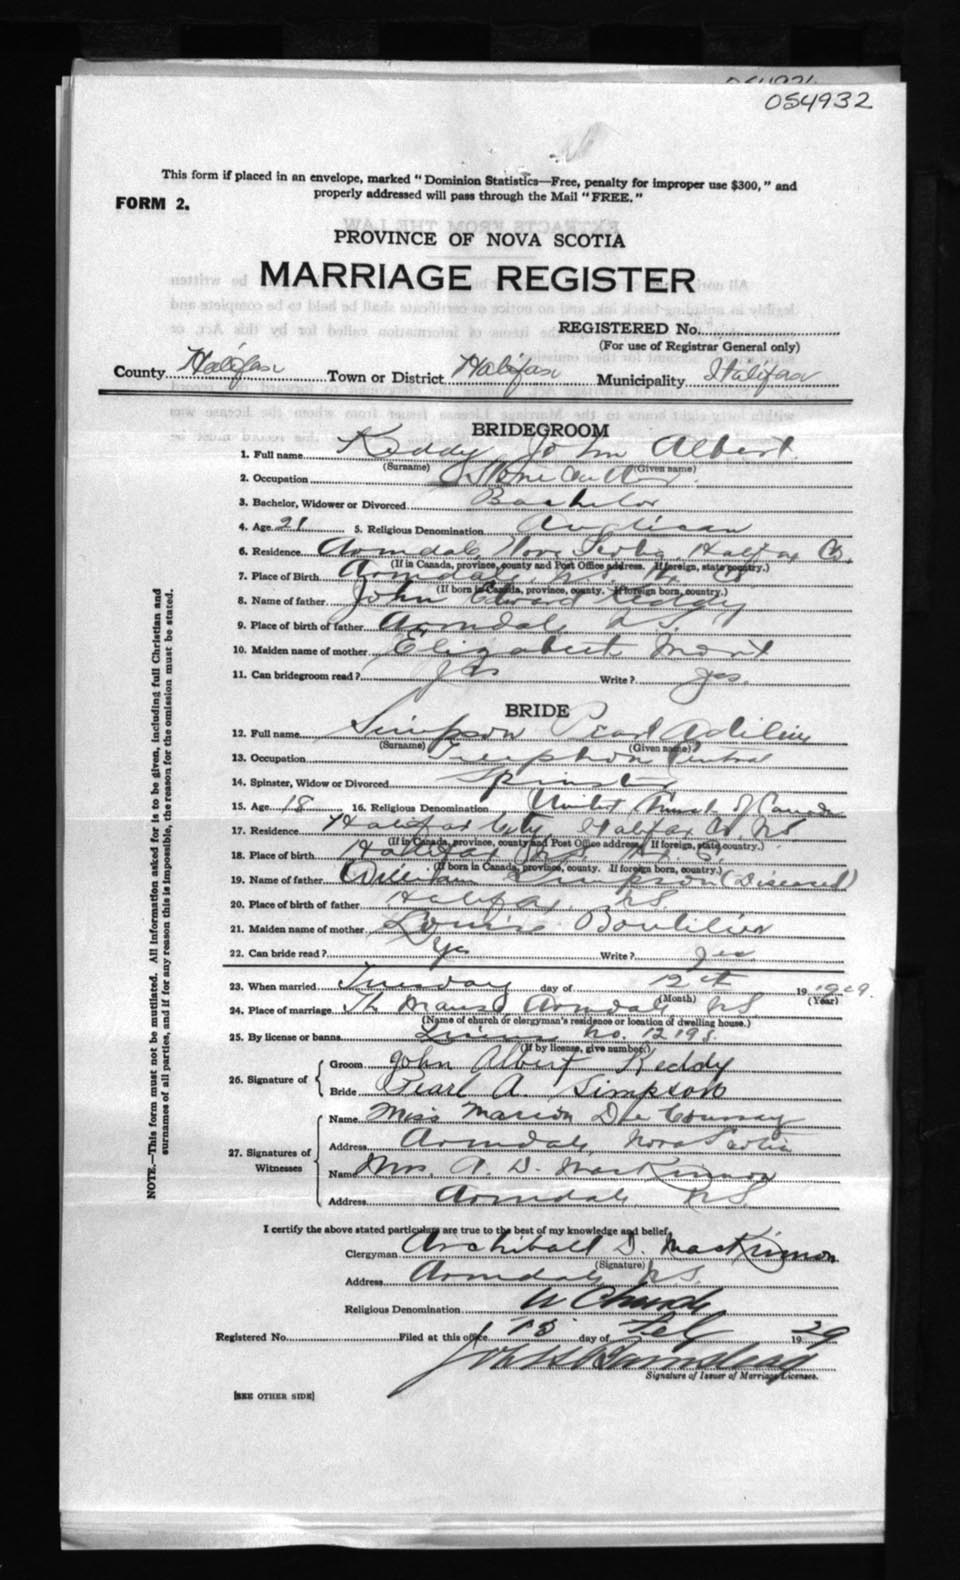 054932
This form if placed in an envelope, marked " Dominion Statistics—Free, penalty for improper use $300," and
properly addressed will pass through the Mail "FREE."
FORM 2.
PROVINCE OF NOVA SCOTIA
MARRIAGE REGISTER
REGISTERED No.
(For use of Registrar General only)
County Halifax Town or District Halifax Municipality Halifax
BRIDEGROOM
1. Full name Keddy John Albert
(Surname) (Given name)
2. Occupation Stone Cutter
3. Bachelor, Widower or Divorced Bachelor
4. Age 21 5. Religious Denomination Anglican
6. Residence Armdale, Nova Scotia, Halifax Co.
(If in Canada, province, county and Post Office address. If foreign, state country.)
7. Place of Birth Armdale, N.S. Hx Co
(If born in Canada, province, county. If foreign born, country.)
8. Name of father John Edward Keddy
9. Place of birth of father Armdale N.S.
10. Maiden name of mother Elizabeth
11. Can bridegroom read? yes Write? yes.
BRIDE
12. Full name Simpson Pearl Adiline
(Surname) (Given name)
13. Occupation Telephone Central
14. Spinster, Widow or Divorced Spinster
15. Age 18 16. Religious Denomination United Church of Canada
17. Residence Halifax City, Halifax Co. N.S.
(If in Canada, province, county and Post Office address. If foreign, state country.)
18. Place of birth Halifax N.S. Hx. C.
(If born in Canada, province, county. If foreign born, country.)
19. Name of father William Simpson (Diseased)
20. Place of birth of father Halifax, N.S.
21. Maiden name of mother Louise Boutilier
22. Can bride read? Yes Write? Yes.
23. When married Tuesday day of 12th 19 1929.
(Month) (Year)
24. Place of marriage The Manse Armdale N.S.
(Name of church or clergyman's residence or location of dwelling house.)
25. By license or banns License No. 12193.
(If by license, give number.)
26. Signature of
Groom John Albert Keddy
Bride Pearl A. Simpson
27. Signatures of Witnesses
Name Miss Marion De Coursay
Address Armdale, Nova Scotia
Name Mrs. A. D. MacKinnon
Address Armdale, N.S.
I certify the above stated particulars are true to the best of my knowledge and belief.
Clergyman Archibald D. MacKinnon
(Signature)
Address Armdale N.S.
Religious Denomination U Church
Registered No. Filed at this office 13 day of Feb 19 29
Signature of Issuer of Marriage Licenses.
[SEE OTHER SIDE]
NOTE.—This form must not be mutilated. All information asked for is to be given, including full Christian and
surnames of all parties, and if for any reason this is impossible, the reason for the omission must be stated.